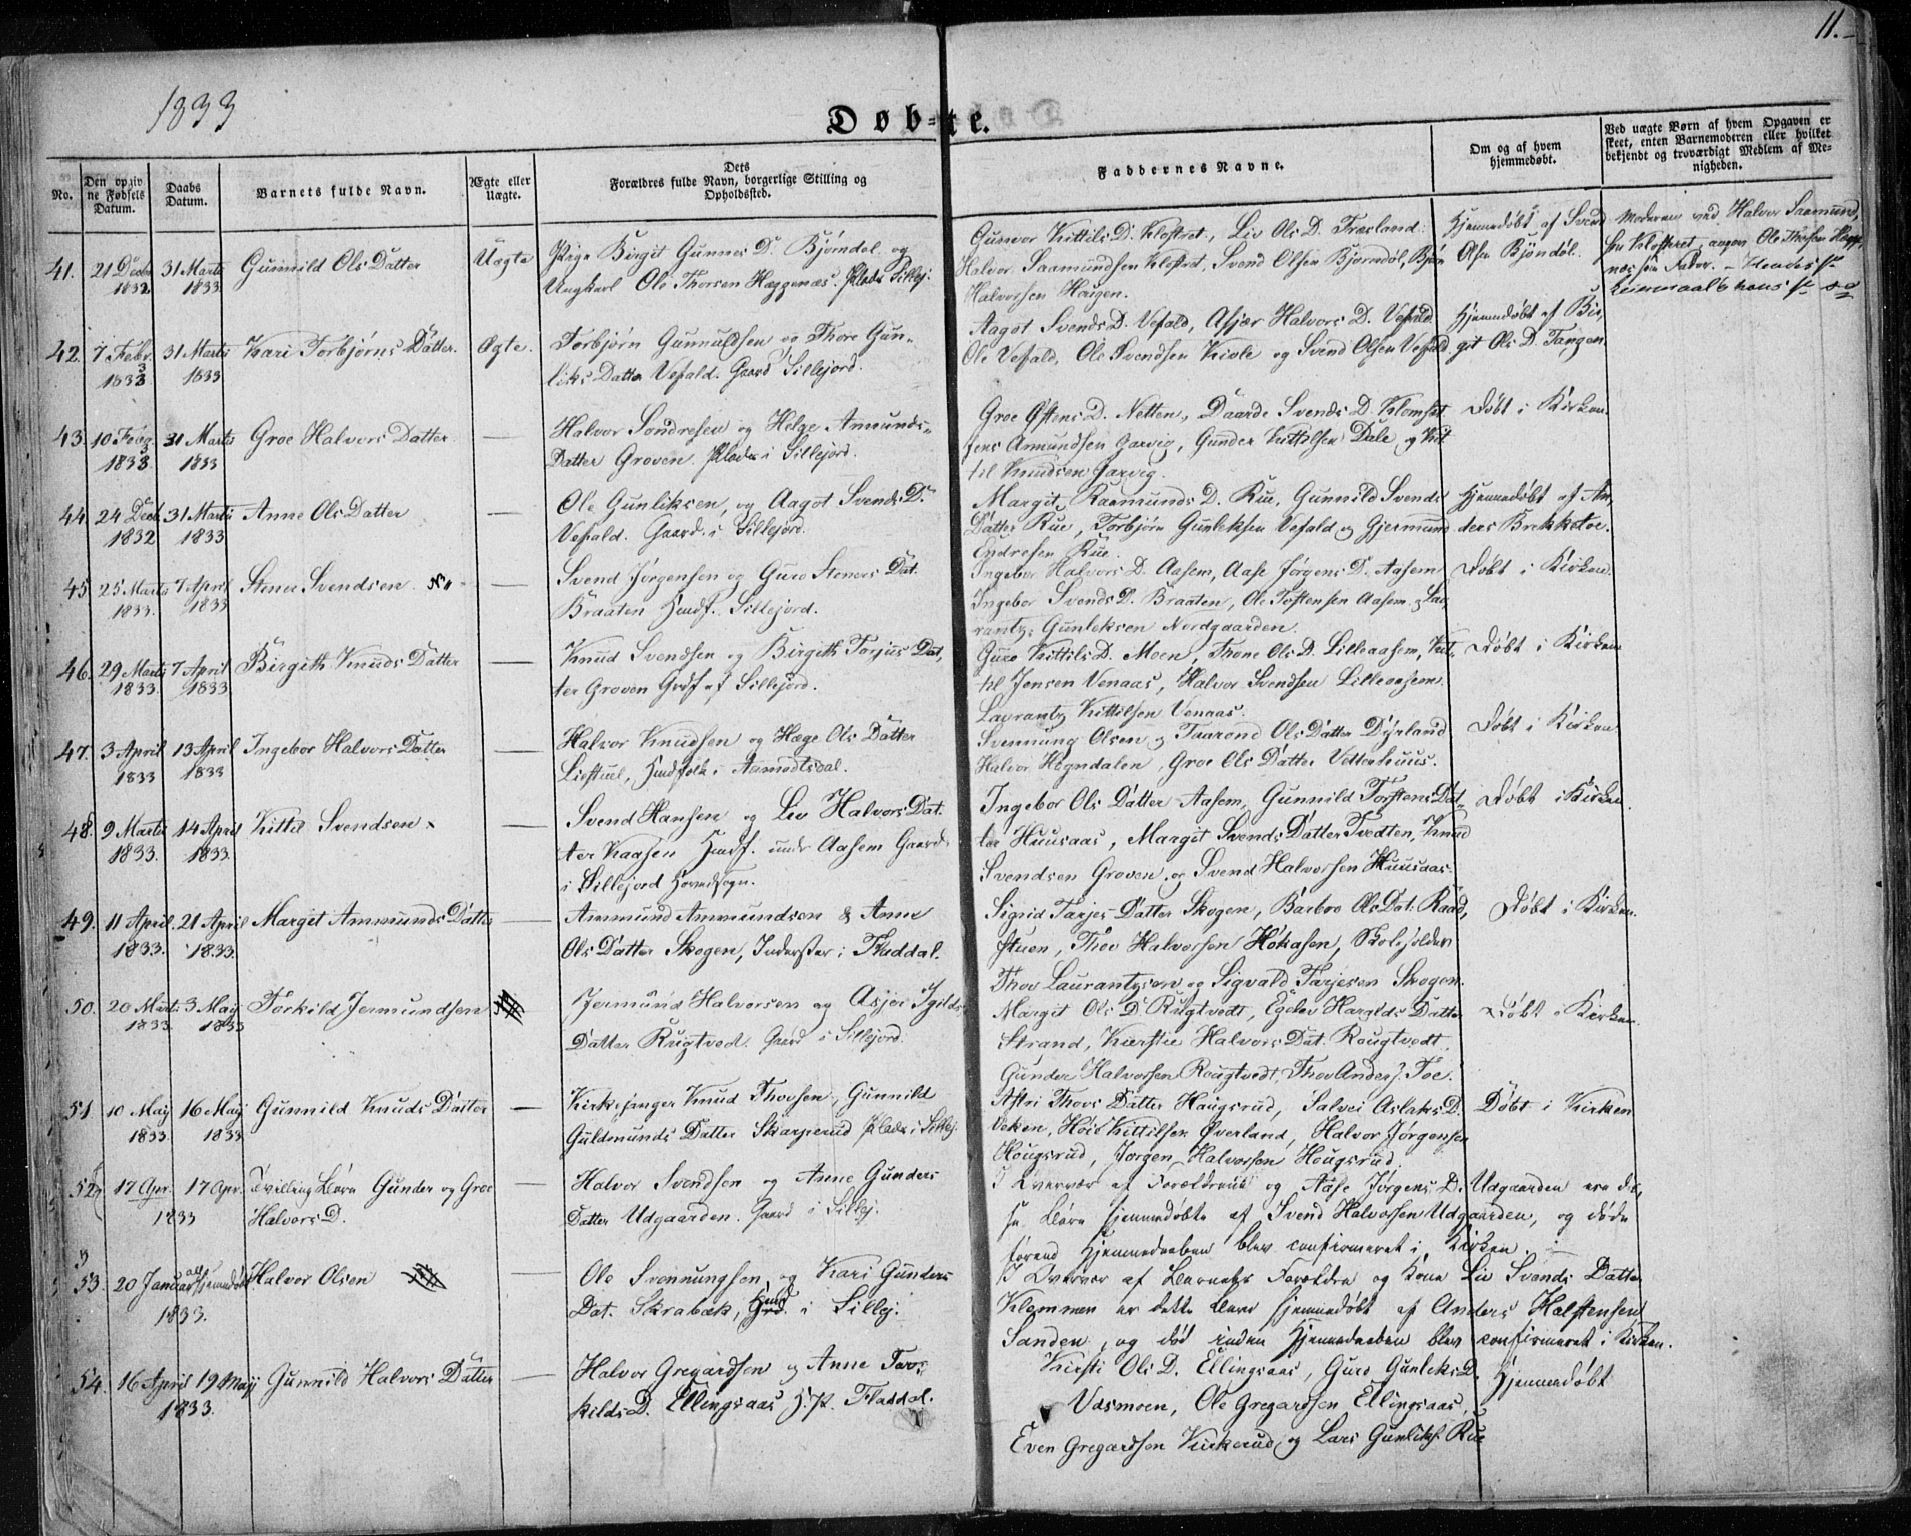 11.
1833
Døbte.
No.
Den opgivne Fødsels Datum.
Daabs Datum.
Barnets fulde Navn.
Ægte eller Uægte.
Dets Forældres fulde Navn, borgerlige Stilling og Opholdssted.
Faddernes Navne.
Om og af hvem hjemmedøbt.
Ved uægte Børn af hvem Opgaven er skeet, enten Barnemoderen eller hvilket bekjendt og troværdigt Medlem af Menigheden.
41. 21 Decbr 1832 31 Marts 1833 Gunnild Ols Datter Uægte
Pige Birgit Gunnes D. Bjørndal og
Ungkarl Ole Thorsen Hæggenæs. Pladsf. Sillej.
Gunvor Kittils D. Klostret, Liv Ols D. Træland
Halvor Saamundsen Klostret, Svend Olsen Bjørndøl, Bjørn
Halvorsen Haugen.
Hjemmedøbt af Svend
Olsen Bjöndöl.
Moderen ved Halvor Saamund,
sen Klosteret, angav Ole Thorsen Hægge
næs som Fader. - Hendes 1ste
Leiermaal & hans 1ste
42. 7 Febr. 1833 31 Marts 1833 Kari Torbjørns Datter. Ægte.
Torbjørn Gunnuldsen og Thore Gun-
liks Datter Vefald. Gaard Sillejord.
Aagot Svends D. Vefald, Asjær Halvors D. Vefald
Ole Vefald, Ole Svendsen Kivle og Svend Olsen Vefald
Hjemmedøbt af Bir,
git Ols D. Tangen.
43. 10 Febr 1833 31 Marts 1833 Groe Halvors Datter —
Halvor Sondresen og Helge Amunds-
Datter Groven. Pladsf i Sillejord.
Groe Østens D. Netten, Daarde Svends D. Klomset
Jens Amundsen Garvig, Gunder Kittilsen Dale, og Kit
til Knudsen Garvig.
Døbt i Kirken.
44. 24 Decb 1832 31 Marts 1833 Anne Ols Datter —
Ole Gunliksen, og Aagot Svends D.
Vefald. Gaard. i Sillejord.
Margit Raamunds D. Rue, Gunnild Svends
Datter Rue, Torbjørn Gunleksen Vefald og Gjermund
Ondresen Rue.
Hjemmedøbt af An,
ders Brekketoe.
45. 25 Marts 1833. 7 April 1833 Stener Svendsen —
Svend Jørgensen og Guro Steners Dat.
Braaten Husf. Sillejord.
Ingebor Halvors D. Aasem, Aase Jörgens D. Aasem
Ingebor Svends D. Braaten, Ole Tostensen Aasem, & Lau,
rantz Gunleksen Nordgaarden.
Døbt i Kirken.
46. 29 Marts 1833. 7 April 1833. Birgith Knuds Datter —
Knud Svendsen og Birgith Torjus Dat,
ter Groven Grdf af Sillejord.
Guro Kittils D. Moen, Thone Ols D. Lilleaasem, Kit,
til Jensen Venaas, Halvor Svendsen Lilleaasem.
Laurantz Kittilsen Venaas.
Døbt i Kirken
47. 3 April 1833 13 April 1833 Ingebor Halvors Datter —
Halvor Knudsen og Hæge Ols Datter
Liestuel, Husfolk i Aamodtsdal.
Svennung Olsen og Taarond Ols Datter Dÿrland
Halvor Høgndalen, Groe Ols Datter Vetterhuus.
Døbt i Kirken
48. 9 Marts 1833. 14 April 1833. Kittil Svendsen —
Svend Hansen og Liv Halvors Dat.
ter Kaasen Husf. under Aasem Gaard
i Sillejord Hovedsogn.
Ingebor Ols Datter Aasem, Gunnild Torstens Dat-
ter Huusaas, Margit Svends Datter Tvedten, Knud
Svendsen Groven, og Svend Halvorsen Huusaas.
Døbt i Kirken
49. 11 April. 1833. 21 April 1833. Margit Ammunds Datter —
Ammund Ammundsen & Anne
Ols Datter Skogen, Inderster i Fladdal.
Sigrid Tarjes Datter Skogen, Barboo Ols Dat. Raad,
stuen, Thov Halvorsen Høkasen, Skoleholder
Thov Laurantzsen og Sigvald Tarjesen Skogen.
Døbt i Kirken.
50. 20 Marts 1833. 3 May 1833 Torkild Jermundsen
Jermund Halvorsen og Asjer Igilds
Datter Rugtved. Gaard i Sillejord.
Margit Ols D Rugtvedt, Egelev Haralds Datter
Strand, Kierstie Halvors Dat. Rougtvedt,
Gunder Halvorsen Rougtvedt, Thov Anders. Toe.
Døbt i Kirken.
51. 10 May 1833. 16 May 1833. Gunnild Knuds Datter —
Kirkesanger Knud Thovsen, Gunnild
Guldmunds Datter Skarperud Pladsf. i Sillej.
Astri Thovs Datter Haugsrud, Salvei Aslaks D.
Veken, Høie Kittilsen Øverland, Halvor Jørgensen
Hougsrud, Jørgen Halvorsen Hougsrud.
Døbt i Kirken
52. 17 Apr. 17 Apr. 1833 Tvilling Børn Gunder og Groe
Halvors D. —
Halvor Svendsen og Anne Gunders
Datter Udgaarden. Gaard i Sillej.
I Overvær af Forældrene og Aase Jørgens D. Udgaarden ere dis,
se Børn hjemmedøbte af Svend Halvorsen Udgaarden, og døde
førend Hjemmedaaben blev confirmeret i Kirken.
53. 20 Januar 1833. Hjemmedøbt Halvor Olsen —
Ole Svennungsen og Kari Gunders
Dat. Skrabæk, Husf. i Sillej.
I Overvær af Barnets Forældre og Kone Liv Svends Datter
Klemmen er dette Barn hjemmedøbt af Anders Halstensen
Sanden, og død inden Hjemmedaaben blev confirmeret i Kirken.
54. 16 April 1833. 19 May Gunnild Halvors Datter —
Halvor Gregardsen og Anne Tor-
kilds D. Ellingsaas, H.f. Fladdal.
Kiersti Ols D. Ellingsaas, Guro Gunleks D.
Vasmoen, Ole Gregardsen Ellingsaas,
Even Gregardsen Kirkerud og Lars Gunliks. Rue
Hjemmedøbt